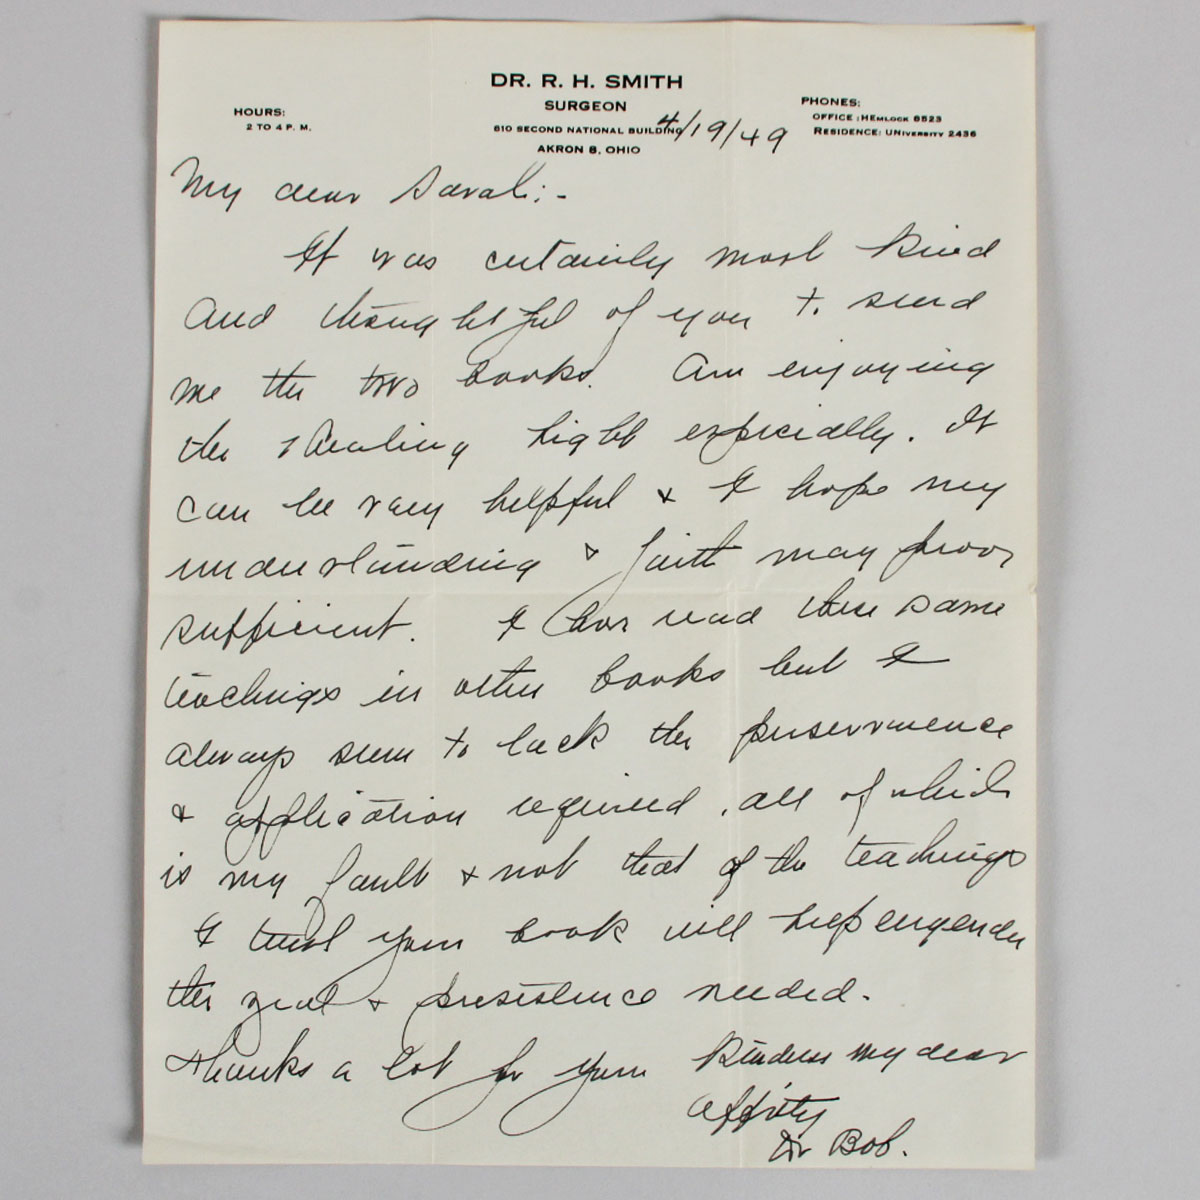 DR. R. H. SMITH
SURGEON
810 SECOND NATIONAL BUILDING
AKRON 8, OHIO
HOURS:
2 TO 4 P. M.
PHONES:
OFFICE: HEMLOCK 8523
RESIDENCE: UNIVERSITY 2436
4/19/49
My dear Sarah:-
It was certainly most kind
and thoughtful of you to send
me the two books. Am enjoying
the Healing Light especially. It
can be very helpful & I hope my
understanding & faith may prove
sufficient. I have read these same
teachings in other books but I
always seem to lack the perserverence
& application required, all of which
is my fault & not that of the teachings
I trust your book will help engender
the zeal & presistence needed.
Thanks a lot for your kindness my dear
Affity
Dr Bob.